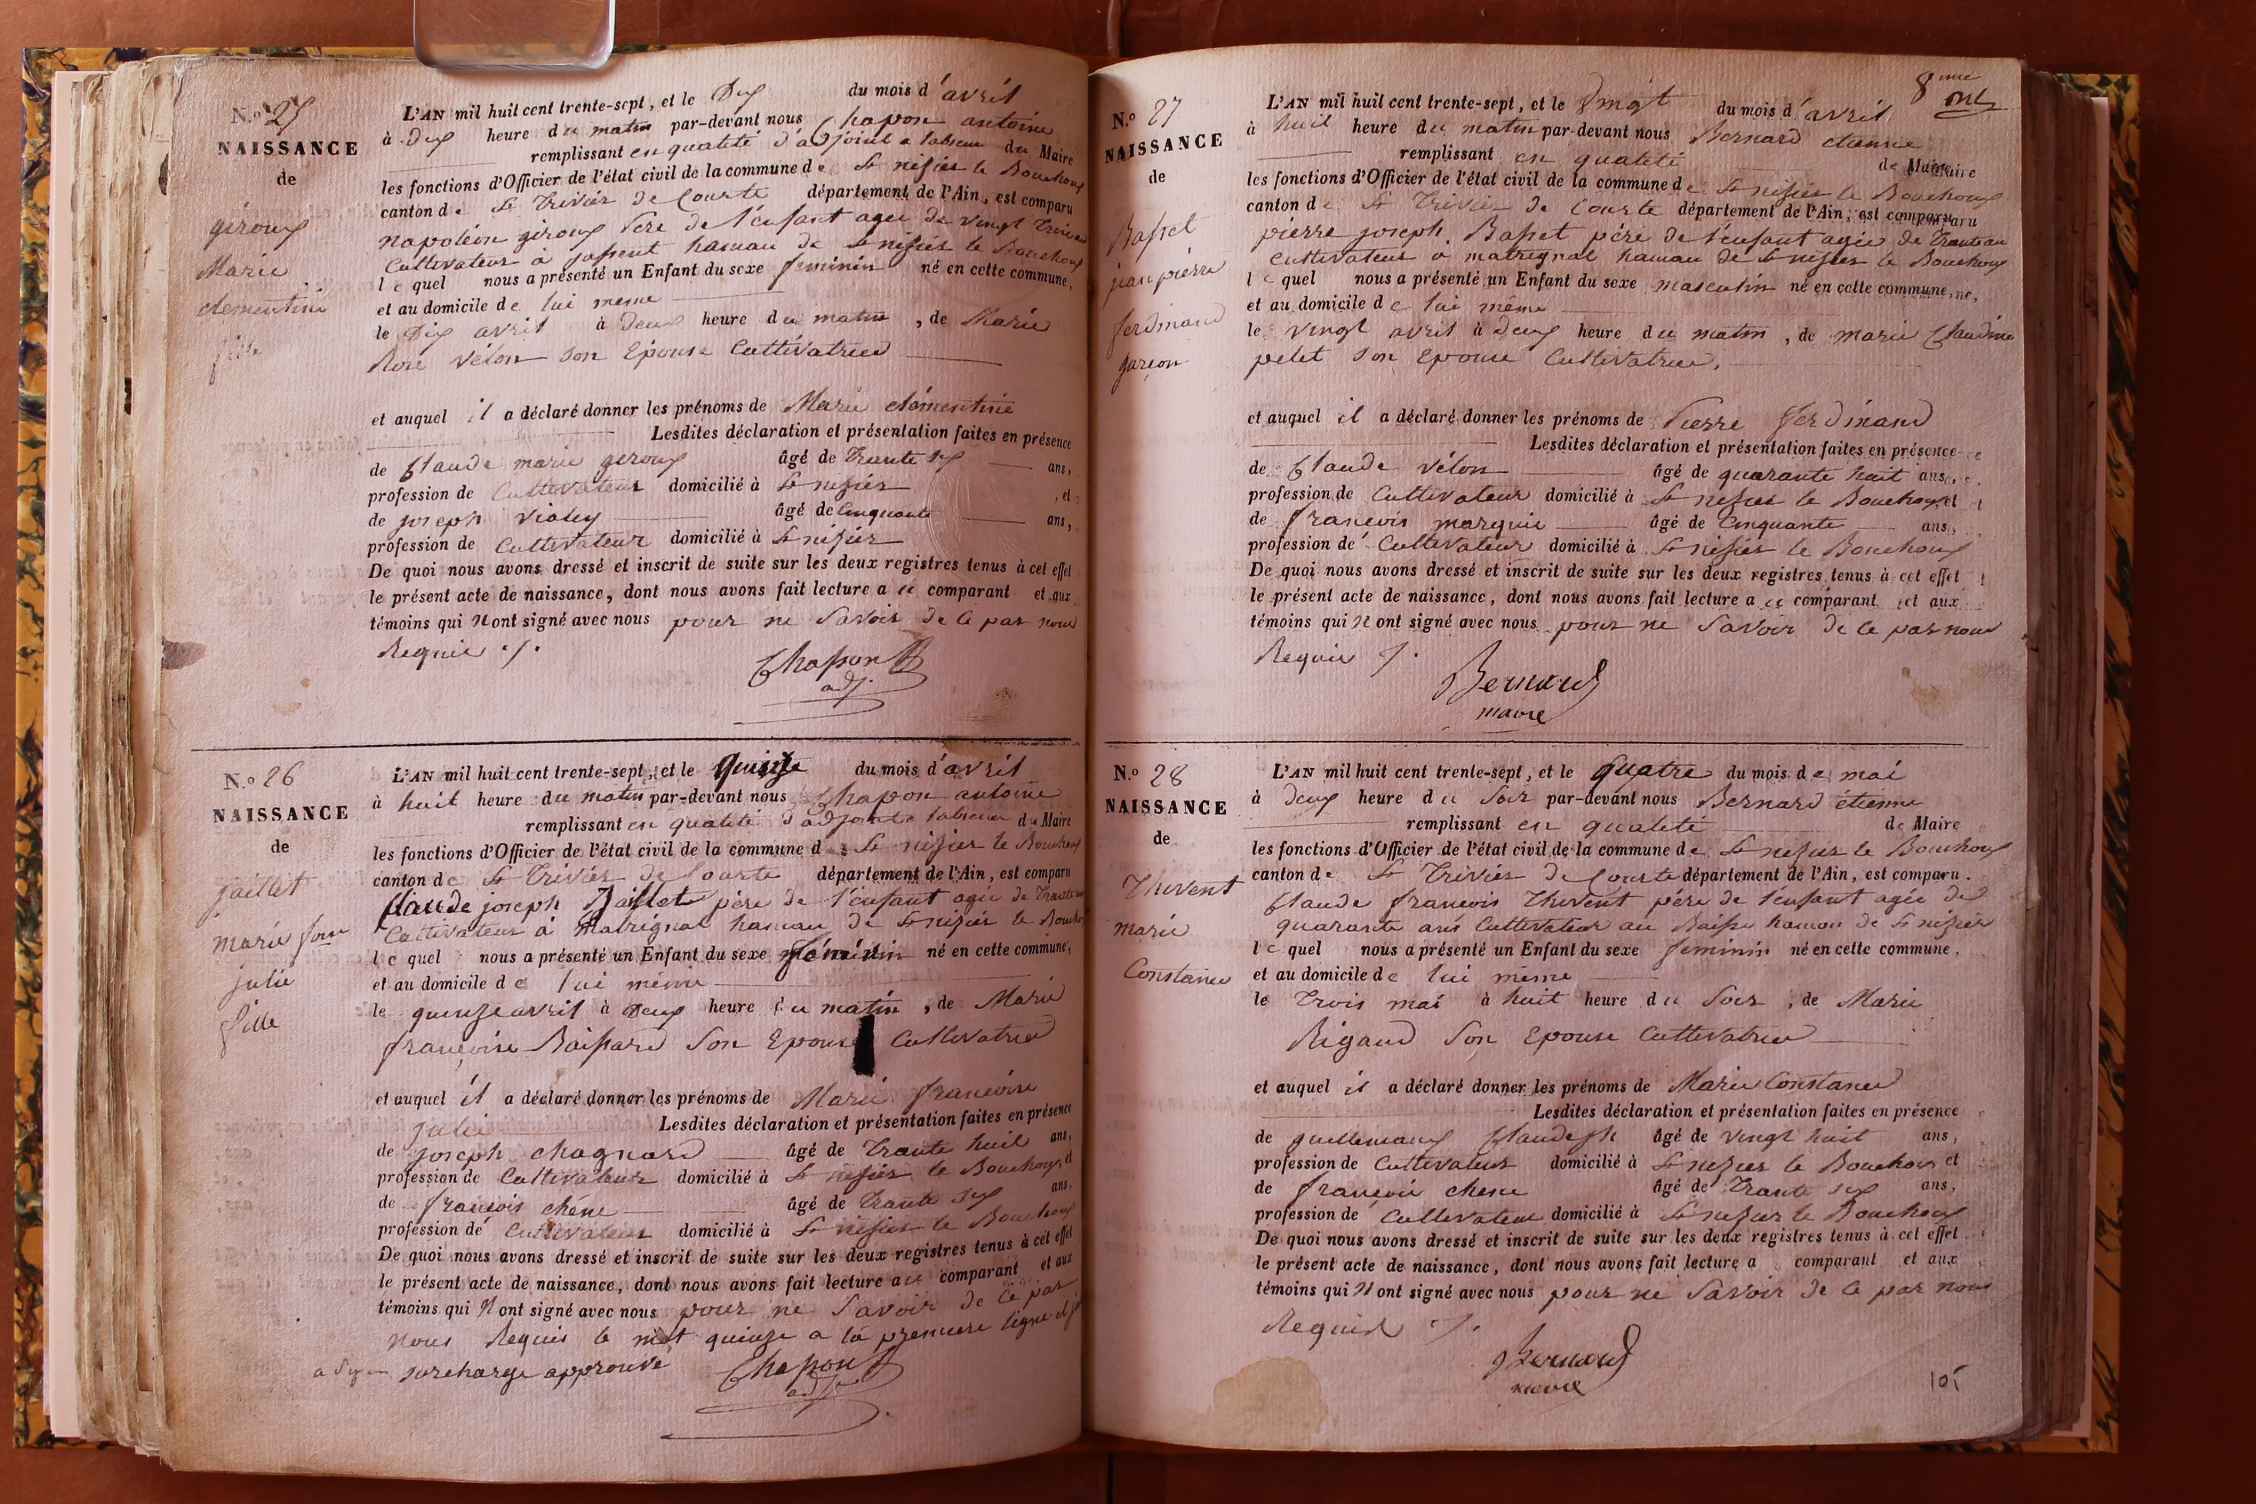 N.º 25
NAISSANCE
de
giroux
Marie
clementine
fille
L'AN mil huit cent trente-sept, et le Dix du mois d'avril
à deux heure du matin par-devant nous Chapon antoine
remplissant en qualité d'adjoint a l'absence du Maire
les fonctions d'Officier de l'état civil de la commune de St nisier le Bouchoux
canton de St Trivier de Courte département de l'Ain, est comparu
Napoléon giroux Pere de l'enfant agée de vingt
Cultivateur a hamau de St nisier le Bouchoux
le quel nous a présenté un Enfant du sexe feminin né en cette commune,
et au domicile de lui meme
le Dix avril à Deux heure du matin, de Marie
Rose Vélon son Epouse Cultivatrice
et auquel il a déclaré donner les prénoms de Marie clémentine
Lesdites déclaration et présentation faites en présence
de Claude marie giroux âgé de Trante six ans,
profession de Cultivateur domicilié à St nisier, et
de joseph Violey âgé de Cinquante ans,
profession de Cultivateur domicilié à St nisier
De quoi nous avons dressé et inscrit de suite sur les deux registres tenus à cet effet
le présent acte de naissance, dont nous avons fait lecture au comparant et aux
témoins qui N ont signé avec nous pour ne Savoir de ce par nous
Requis ./.
Chapon
adj.
N.º 26
NAISSANCE
de
jaillet
marie fran
julie
fille
L'AN mil huit cent trente-sept, et le quinze du mois d'avril
à huit heure du matin par-devant nous Chapon antoine
remplissant en qualité d'adjoint a l'absence du Maire
les fonctions d'Officier de l'état civil de la commune de St nisier le Bouchoux
canton de St Trivier de Courte département de l'Ain, est comparu
Claude joseph Jaillet père de l'enfant agée de
Cultivateur à Matrignat hamau de St nisier le Boucho
le quel nous a présenté un Enfant du sexe féminin né en cette commune,
et au domicile de lui méme
le quinze avril à Deux heure du matin, de Marie
françoise Raissard Son Epouse Cultivatrice
et auquel il a déclaré donner les prénoms de Marie françoise
julie Lesdites déclaration et présentation faites en présence
de joseph chagnard âgé de Trante huit ans,
profession de Cultivateur domicilié à St nisier le Bouchoux et
de françois chêne âgé de Trante six ans,
profession de Cultivateur domicilié à St nisier le Bouchoux
De quoi nous avons dressé et inscrit de suite sur les deux registres tenus à cet effet
le présent acte de naissance, dont nous avons fait lecture au comparant et aux
témoins qui N ont signé avec nous pour ne Savoir de ce par
nous Requis le mot quinze a la premiere ligne
surcharge approuvé
Chapon
adj
8me
N.º 27
NAISSANCE
de
Basset
jean pierre
ferdinand
garçon
L'AN mil huit cent trente-sept, et le Vingt du mois d'avril
à huit heure du matin par-devant nous Bernard etienne
remplissant en qualité de Maire
les fonctions d'Officier de l'état civil de la commune de St nisier le Bouchoux
canton de St Trivier de Courte département de l'Ain, est comparu
pierre joseph Basset père de l'enfant agée de Trante an
cultivateur a matrignat hamau de St nisier le Bouchoux
le quel nous a présenté un Enfant du sexe masculin né en cette commune,
et au domicile de lui méme
le vingt avril à deux heure du matin, de marie Claudine
pelet son Epouse Cultivatrice.
et auquel il a déclaré donner les prénoms de Pierre ferdinand
Lesdites déclaration et présentation faites en présence
de Claude Vélon âgé de quarante huit ans,
profession de Cultivateur domicilié à St nisier le Bouchoux et
de françois marguin âgé de Cinquante ans,
profession de Cultivateur domicilié à St nisier le Bouchoux
De quoi nous avons dressé et inscrit de suite sur les deux registres tenus à cet effet
le présent acte de naissance, dont nous avons fait lecture au comparant et aux
témoins qui N ont signé avec nous pour ne Savoir de ce par nous
Requis ./.
Bernard
maire
N.º 28
NAISSANCE
de
Thivent
marie
Constance
L'AN mil huit cent trente-sept, et le quatre du mois de mai
à deux heure du Soir par-devant nous Bernard étienne
remplissant en qualité de Maire
les fonctions d'Officier de l'état civil de la commune de St nisier le Bouchoux
canton de St Trivier de Courte département de l'Ain, est comparu.
Claude françois Thivent père de l'enfant agée de
quarante ans Cultivateur au hamau de St nisier
le quel nous a présenté un Enfant du sexe feminin né en cette commune,
et au domicile de lui méme
le Trois mai à huit heure du Soir, de Marie
Rigaud Son Epouse Cultivatrice
et auquel il a déclaré donner les prénoms de Marie Constance
Lesdites déclaration et présentation faites en présence
de guillemaux Claude Jh âgé de vingt huit ans,
profession de Cultivateur domicilié à St nisier le Bouchoux et
de françois chene âgé de Trante six ans,
profession de Cultivateur domicilié à St nisier le Bouchoux
De quoi nous avons dressé et inscrit de suite sur les deux registres tenus à cet effet
le présent acte de naissance, dont nous avons fait lecture a comparant et aux
témoins qui N ont signé avec nous pour ne Savoir de ce par nous
Requis ./.
Bernard
maire
105